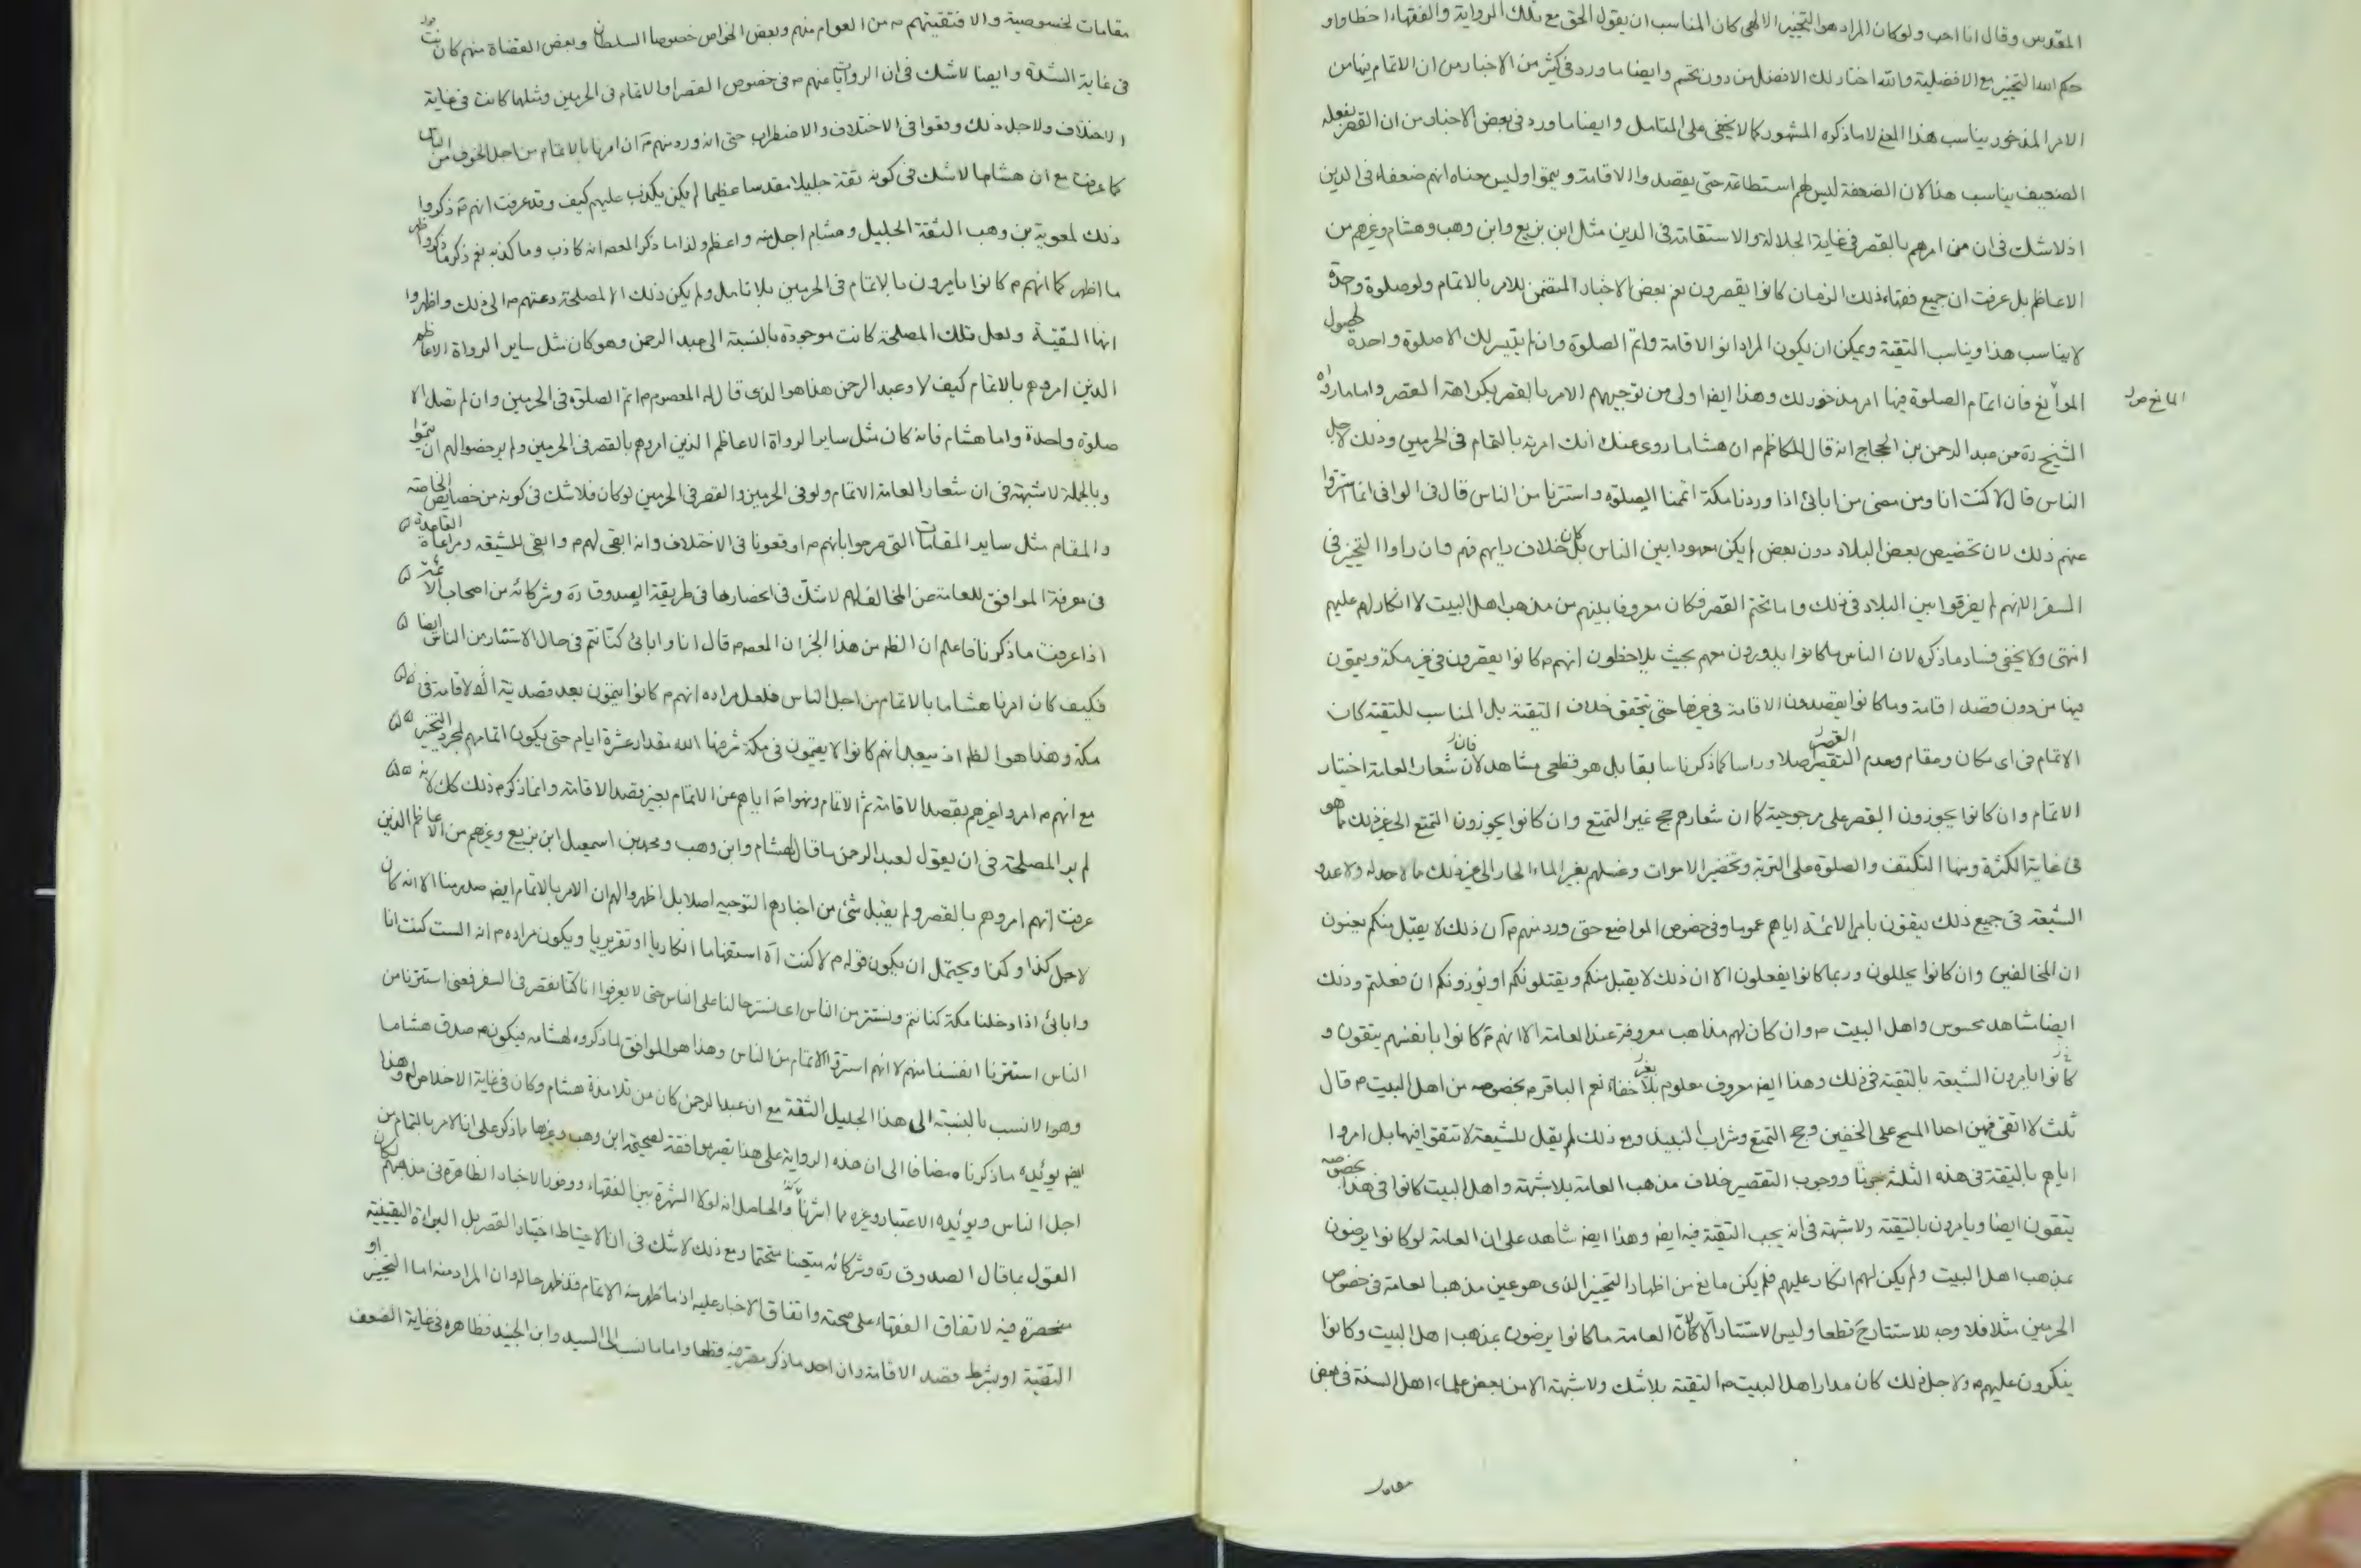 المقدس وقال انا احب ولو كان المراد هو التخيير الالهى كان المناسب ان يقول الحق مع تلك الرواية والفقهاء اخطاوا و
حكم الله التخيير مع الافضلية وانه اختار لك الافضل من دون تحتم وايضا ما ورد فى كثير من الاخبار من ان الاتمام فيها من
الامر المذخور يناسب هذا المعنى لا ما ذكره المشهور كما لا يخفى على المتامل وايضا ما ورد فى بعض الاخبار من ان القصر يفعله
الضعيف يناسب هذا لان الضعفة ليس لهم استطاعة حتى يقصدوا الاقامة ويتموا وليس معناه انهم ضعفاء فى الدين
اذ لا شك فى ان من امرهم بالقصر فى غاية الجلالة والاستقامة فى الدين مثل ابن بزيع وابن وهب وهشام وغيرهم من
الاعاظم بل عرفت ان جميع فقهاء ذلك الزمان كانوا يقصرون نعم بعض الاخبار المتضمن للامر بالاتمام ولو صلوة واحدة
لا يناسب هذا ويناسب التقية ويمكن ان يكون المراد انو الاقامة واتم الصلوة وان لم يتيسر لك الا صلوة واحدة لحصول
الموانع فان اتمام الصلوة فيها امر مذخور لك وهذا ايضا اولى من توجيههم الامر بالقصر بكراهة القصر واما ما رواه
الشيخ ره عن عبد الرحمن بن الحجاج انه قال للكاظم م ان هشاما روى عنك انك امرته بالتمام فى الحرمين وذلك لاجل
الناس قال لا كنت انا ومن مضى من ابائى اذا وردنا مكة اتممنا الصلوة واستترنا من الناس قال فى الوافى انما استتروا
عنهم ذلك لان تخصيص بعض البلاد دون بعض لم يكن معهودا بين الناس بل كان خلاف رايهم فهم وان راوا التخيير فى
السفر الا انهم لم يفرقوا بين البلاد فى ذلك واما تحتم القصر فكان معروفا بينهم من مذهب اهل البيت لا انكار لهم عليهم
انتهى ولا يخفى فساد ما ذكره لان الناس ما كانوا يدورون معهم بحيث يلاحظون انهم م كانوا يقصرون فى غير مكة ويتمون
فيها من دون قصد اقامة وما كانوا يقصدون الاقامة فى غيرها حتى يتحقق خلاف التقية بل المناسب للتقية كان
الاتمام فى اى مكان ومقام وعدم القصر اصلا وراسا كما ذكرنا سابقا بل هو قطعى مشاهد فان شعار العامة اختيار
الاتمام وان كانوا يجوزون القصر على مرجوحية كما ان شعارهم حج غير التمتع وان كانوا يجوزون التمتع الى غير ذلك مما هو
فى غاية الكثرة ومنها التكتف والصلوة على التربة وتخضير الاموات وغسلهم بغير الماء الحار الى غير ذلك مما لا حد له ولا عد و
الشيعة فى جميع ذلك يتقون بامر الائمة اياهم عموما وفى خصوص المواضع حتى ورد منهم م ان ذلك لا يقبل منكم يعنون
ان المخالفين وان كانوا يحللون وربما كانوا يفعلون الا ان ذلك لا يقبل منكم ويقتلونكم او يؤذونكم ان فعلتم وذلك
ايضا مشاهد محسوس واهل البيت م وان كان لهم مذاهب معروفة عند العامة الا انهم م كانوا بانفسهم يتقون و
كانوا يامرون الشيعة بالتقية فى ذلك وهذا ايضا معروف معلوم بغير خفاء نعم الباقر م بخصوصه من اهل البيت م قال
ثلث لا اتقى فيهن احدا المسح على الخفين وحج التمتع وشراب النبيذ ومع ذلك لم يقل للشيعة لا تتقوا فيها بل امروا
اياهم بالتقية فى هذه الثلثة ووجوب التقصير خلاف مذهب العامة بلا شبهة واهل البيت كانوا فى هذا بخصوصه
يتقون ايضا ويامرون بالتقية ولا شبهة فى انه يجب التقية فيه ايضا وهذا ايضا شاهد على ان العامة لو كانوا يرضون
بمذهب اهل البيت ولم يكن لهم انكار عليهم فلم يكن مانع من اظهار التخيير الذى هو عين مذهب العامة فى خصوص
الحرمين مثلا فلا وجه للاستتار ح قطعا وليس الاستتار الا لان العامة ما كانوا يرضون بمذهب اهل البيت وكانوا
ينكرون عليهم م ولاجل ذلك كان مدار اهل البيت م التقية بلا شك ولا شبهة الا من بعض علماء اهل السنة فى بعض
مقامات
الموانع صول
مقامات لخصوصية والا فتقيتهم م من العوام منهم وبعض الخواص خصوصا السلطان وبعض القضاة منهم كانت
فى غاية الشدة وايضا لا شك فى ان الروايات عنهم م فى خصوص القصر او الاتمام فى الحرمين ومثلهما كانت فى غاية
الاختلاف ولاجل ذلك وقعوا فى الاختلاف والاضطراب حتى انه ورد منهم م ان امرنا بالاتمام من اجل الخوف من الناس
كما عرفت مع ان هشاما لا شك فى كونه ثقة جليلا مقدسا عظيما لم يكن يكذب عليهم كيف وقد عرفت انهم م ذكروا
ذلك لمعوية بن وهب الثقة الجليل وهشام اجل منه واعظم ولذا ما ذكر المعصوم انه كاذب وما كذبه نعم ذكر
ما اظهر كما انهم م كانوا يامرون بالاتمام فى الحرمين بلا تامل ولم يكن ذلك الا لمصلحة دعتهم م الى ذلك واظهروا
انها التقية ولعل تلك المصلحة كانت موجودة بالنسبة الى عبد الرحمن وهو كان مثل ساير الرواة الاعاظم
الذين امروهم بالاتمام كيف لا وعبد الرحمن هذا هو الذى قال له المعصوم م اتم الصلوة فى الحرمين وان لم تصل الا
صلوة واحدة واما هشام فانه كان مثل ساير الرواة الاعاظم الذين امروهم بالقصر فى الحرمين ولم يرخصوا لهم ان يتموا
وبالجملة لا شبهة فى ان شعار العامة الاتمام ولو فى الحرمين والقصر فى الحرمين لو كان فلا شك فى كونه من خصايص الخاصة
والمقام مثل ساير المقامات التى صرحوا بانهم م اوقعونا فى الاختلاف وانه ابقى لهم م وابقى للشيعة ومراعاة القاعدة
فى معرفة الموافق للعامة عن المخالف لهم لا شك فى انحصارها فى طريقة الصدوق ره وشركائه من اصحاب الائمة
اذا عرفت ما ذكرنا فاعلم ان الظ من هذا الخبر ان المعصوم م قال انا وابائى كنا نتم فى حال الاستتار من الناس ايضا
فكيف كان امرنا هشاما بالاتمام من اجل الناس فلعل مراده انهم م كانوا يتمون بعد قصد نية الاقامة فى
مكة وهذا هو الظ اذ يبعد انهم كانوا لا يقيمون فى مكة شرفها الله مقدار عشرة ايام حتى يكون اتمامهم لمجرد التخيير
مع انهم م امروا غيرهم بقصد الاقامة ثم الاتمام ونهوا م اياهم عن الاتمام بغير قصد الاقامة وانما ذكر م ذلك كك لانه
لم ير المصلحة فى ان يقول لعبد الرحمن ما قال لهشام وابن وهب ومحمد بن اسمعيل ابن بزيع وغيرهم من الاعاظم الذين
عرفت انهم امروهم بالقصر ولم يقبل شئ من اخبارهم التوجيه اصلا بل اظهروا لهم ان الامر بالاتمام ايضا صدر منا الا انه كان
لاجل كذا وكذا ويحتمل ان يكون قوله م لا كنت اه استفهاما انكاريا او تقريريا ويكون مراده م انه الست كنت انا
وابائى اذا دخلنا مكة كنا نتم ونستتر من الناس اى نستر حالنا على الناس حتى لا يعرفوا انا كنا نقصر فى السفر فمعنى استترنا من
الناس استترنا انفسنا منهم لا انهم استروا الاتمام من الناس وهذا هو الموافق لما ذكروه لهشام فيكون م صدق هشاما
وهو الانسب بالنسبة الى هذا الجليل الثقة مع ان عبد الرحمن كان من تلامذة هشام وكان فى غاية الاخلاص له وهذا
ايضا يؤيده ما ذكرناه مضافا الى ان هذه الرواية على هذا يصير موافقة لصحيحة ابن وهب وغيرها مما ذكر على ان الامر بالتمام من
اجل الناس ويؤيده الاعتبار وغيره مما اشرنا والحاصل انه لولا الشهرة بين الفقهاء ووفور الاخبار الظاهرة فى مذهبهم لكان
القول بما قال الصدوق ره وشركائه متعينا متحتما ومع ذلك لا شك فى ان الاحتياط اختيار القصر بل البراءة اليقينية
منحصرة فيه لاتفاق الفقهاء على صحته واتفاق الاخبار عليه اذ ما ظهر منه الاتمام فقد ظهر حاله وان المراد منه اما التخيير او
التقية او بشرط قصد الاقامة وان احد ما ذكر معتبر فيه قطعا واما ما نسب الى السيد وابن الجنيد فظاهره فى غاية الضعف